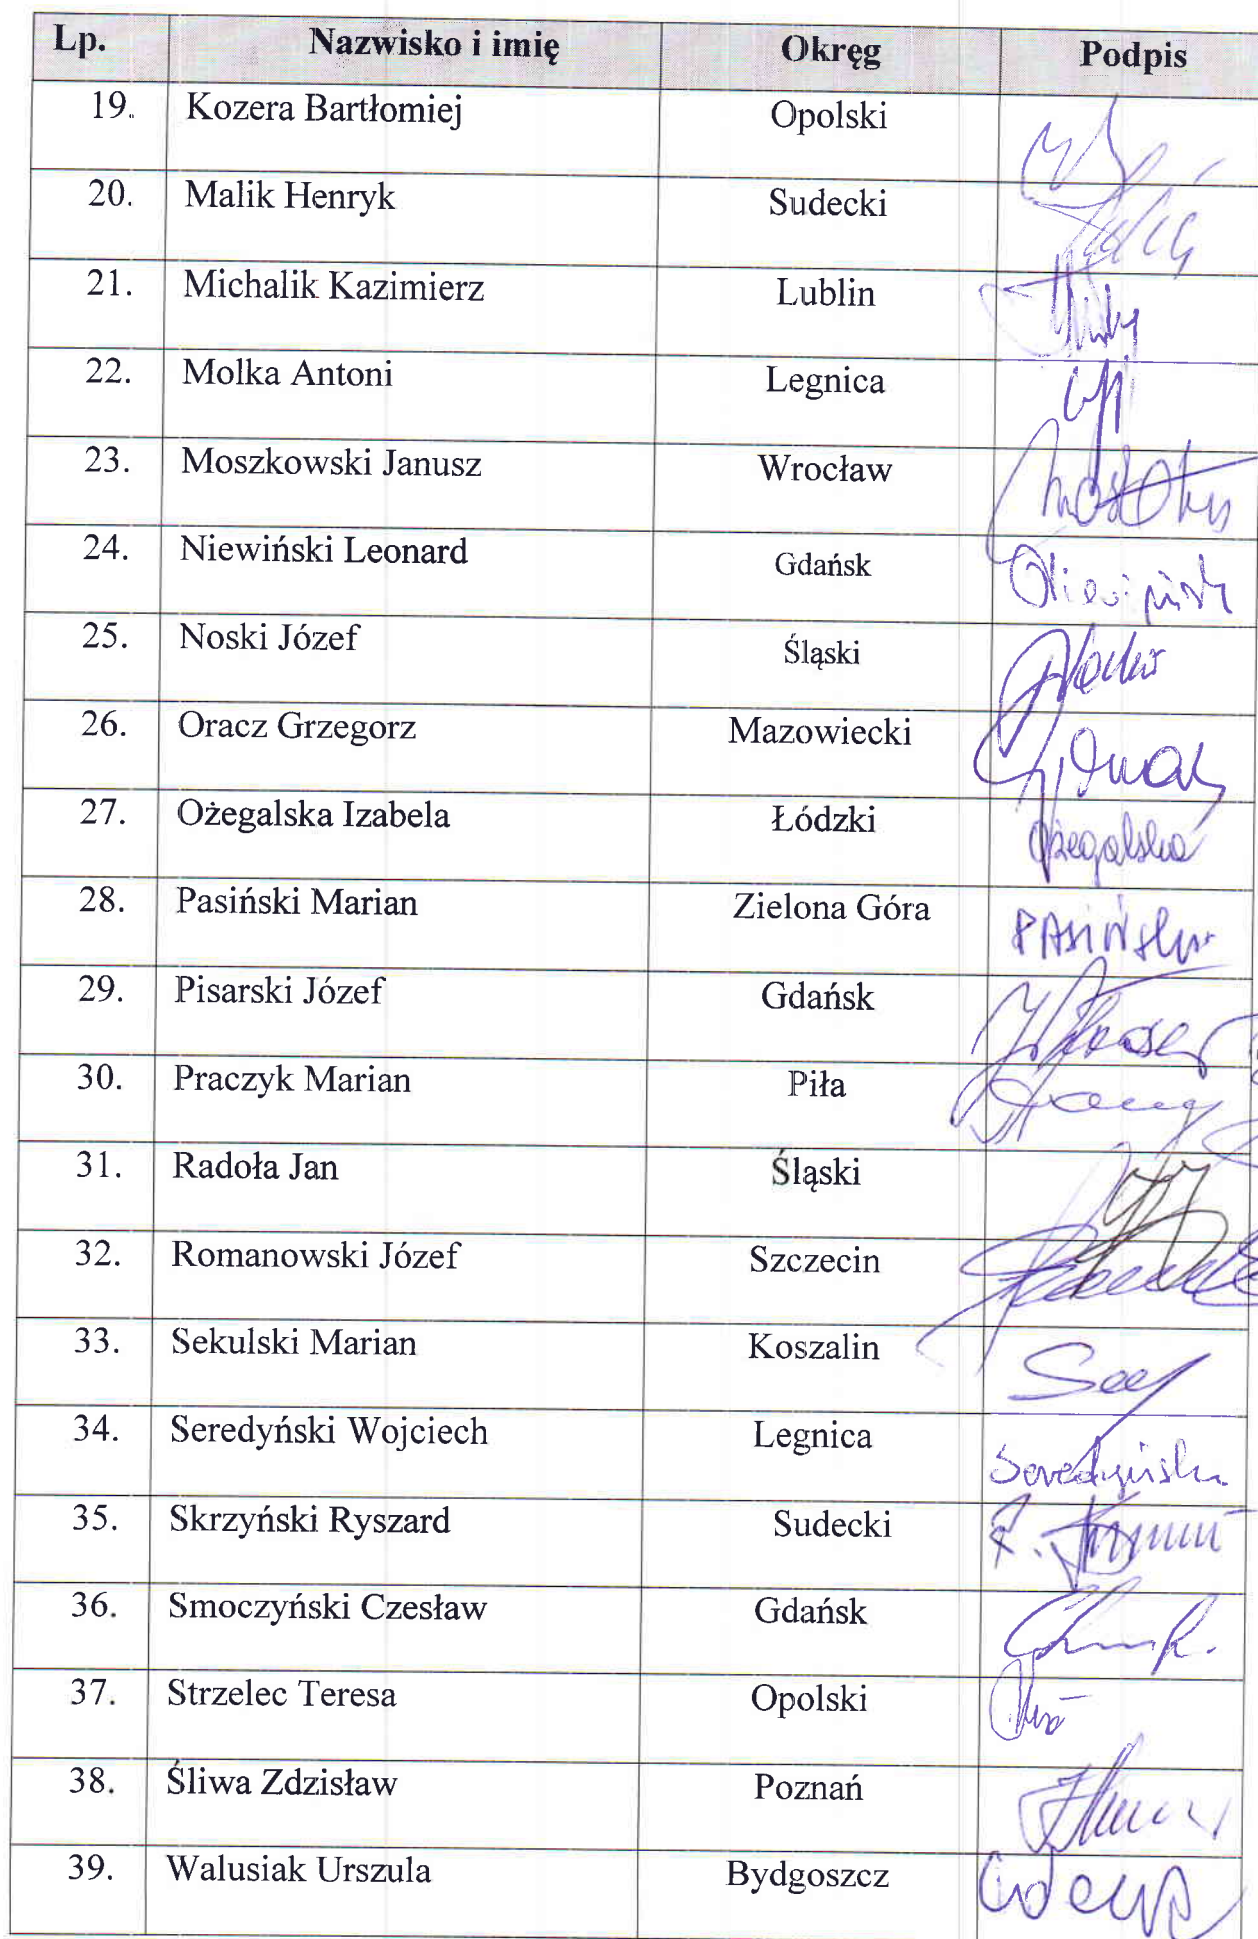 Lp. Nazwisko i imię Okręg Podpis
19. Kozera Bartłomiej Opolski
20. Malik Henryk Sudecki
21. Michalik Kazimierz Lublin
22. Molka Antoni Legnica
23. Moszkowski Janusz Wrocław
24. Niewiński Leonard Gdańsk
25. Noski Józef Śląski
26. Oracz Grzegorz Mazowiecki
27. Ożegalska Izabela Łódzki Ożegalska
28. Pasiński Marian Zielona Góra Pasiński
29. Pisarski Józef Gdańsk
30. Praczyk Marian Piła
31. Radoła Jan Śląski
32. Romanowski Józef Szczecin
33. Sekulski Marian Koszalin
34. Seredyński Wojciech Legnica Seredyński
35. Skrzyński Ryszard Sudecki
36. Smoczyński Czesław Gdańsk
37. Strzelec Teresa Opolski
38. Śliwa Zdzisław Poznań
39. Walusiak Urszula Bydgoszcz